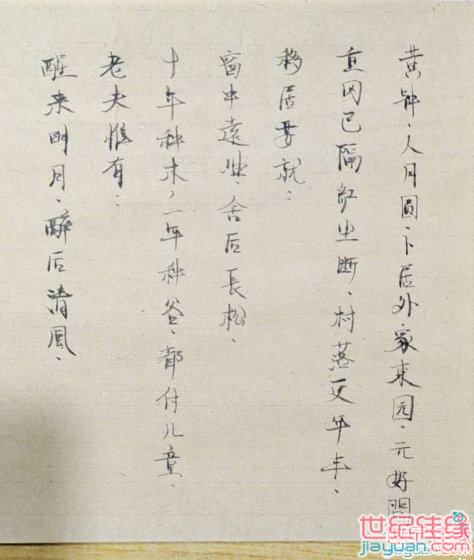 黄钟、人月圆、卜居外家東园、元好問
重冈已隔红尘断、村落更年丰、
移居要就：
窗中遠岫、舍后長松、
十年种木，一年种谷、都付儿童、
老夫惟有：
醒来明月、醉后清風、
世纪佳缘
jiayuan.com